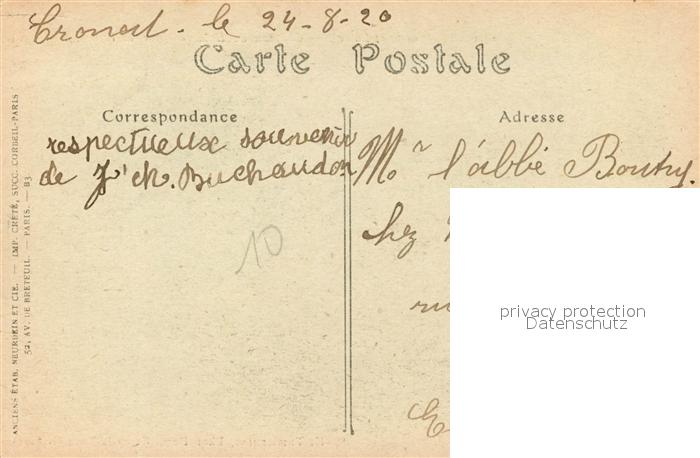 le 24-8-20
Carte Postale
Correspondance
respectueux souvenir
de J' ch. Buchaudon
Adresse
Mr l'abbé Boutry.
chez
10
privacy protection
Datenschutz
ANCIENS ÉTAB. NEURDEIN ET CIE. — IMP. CRÉTÉ, SUCC. CORBEIL-PARIS
52, AV. DE BRETEUIL. — PARIS. — B3